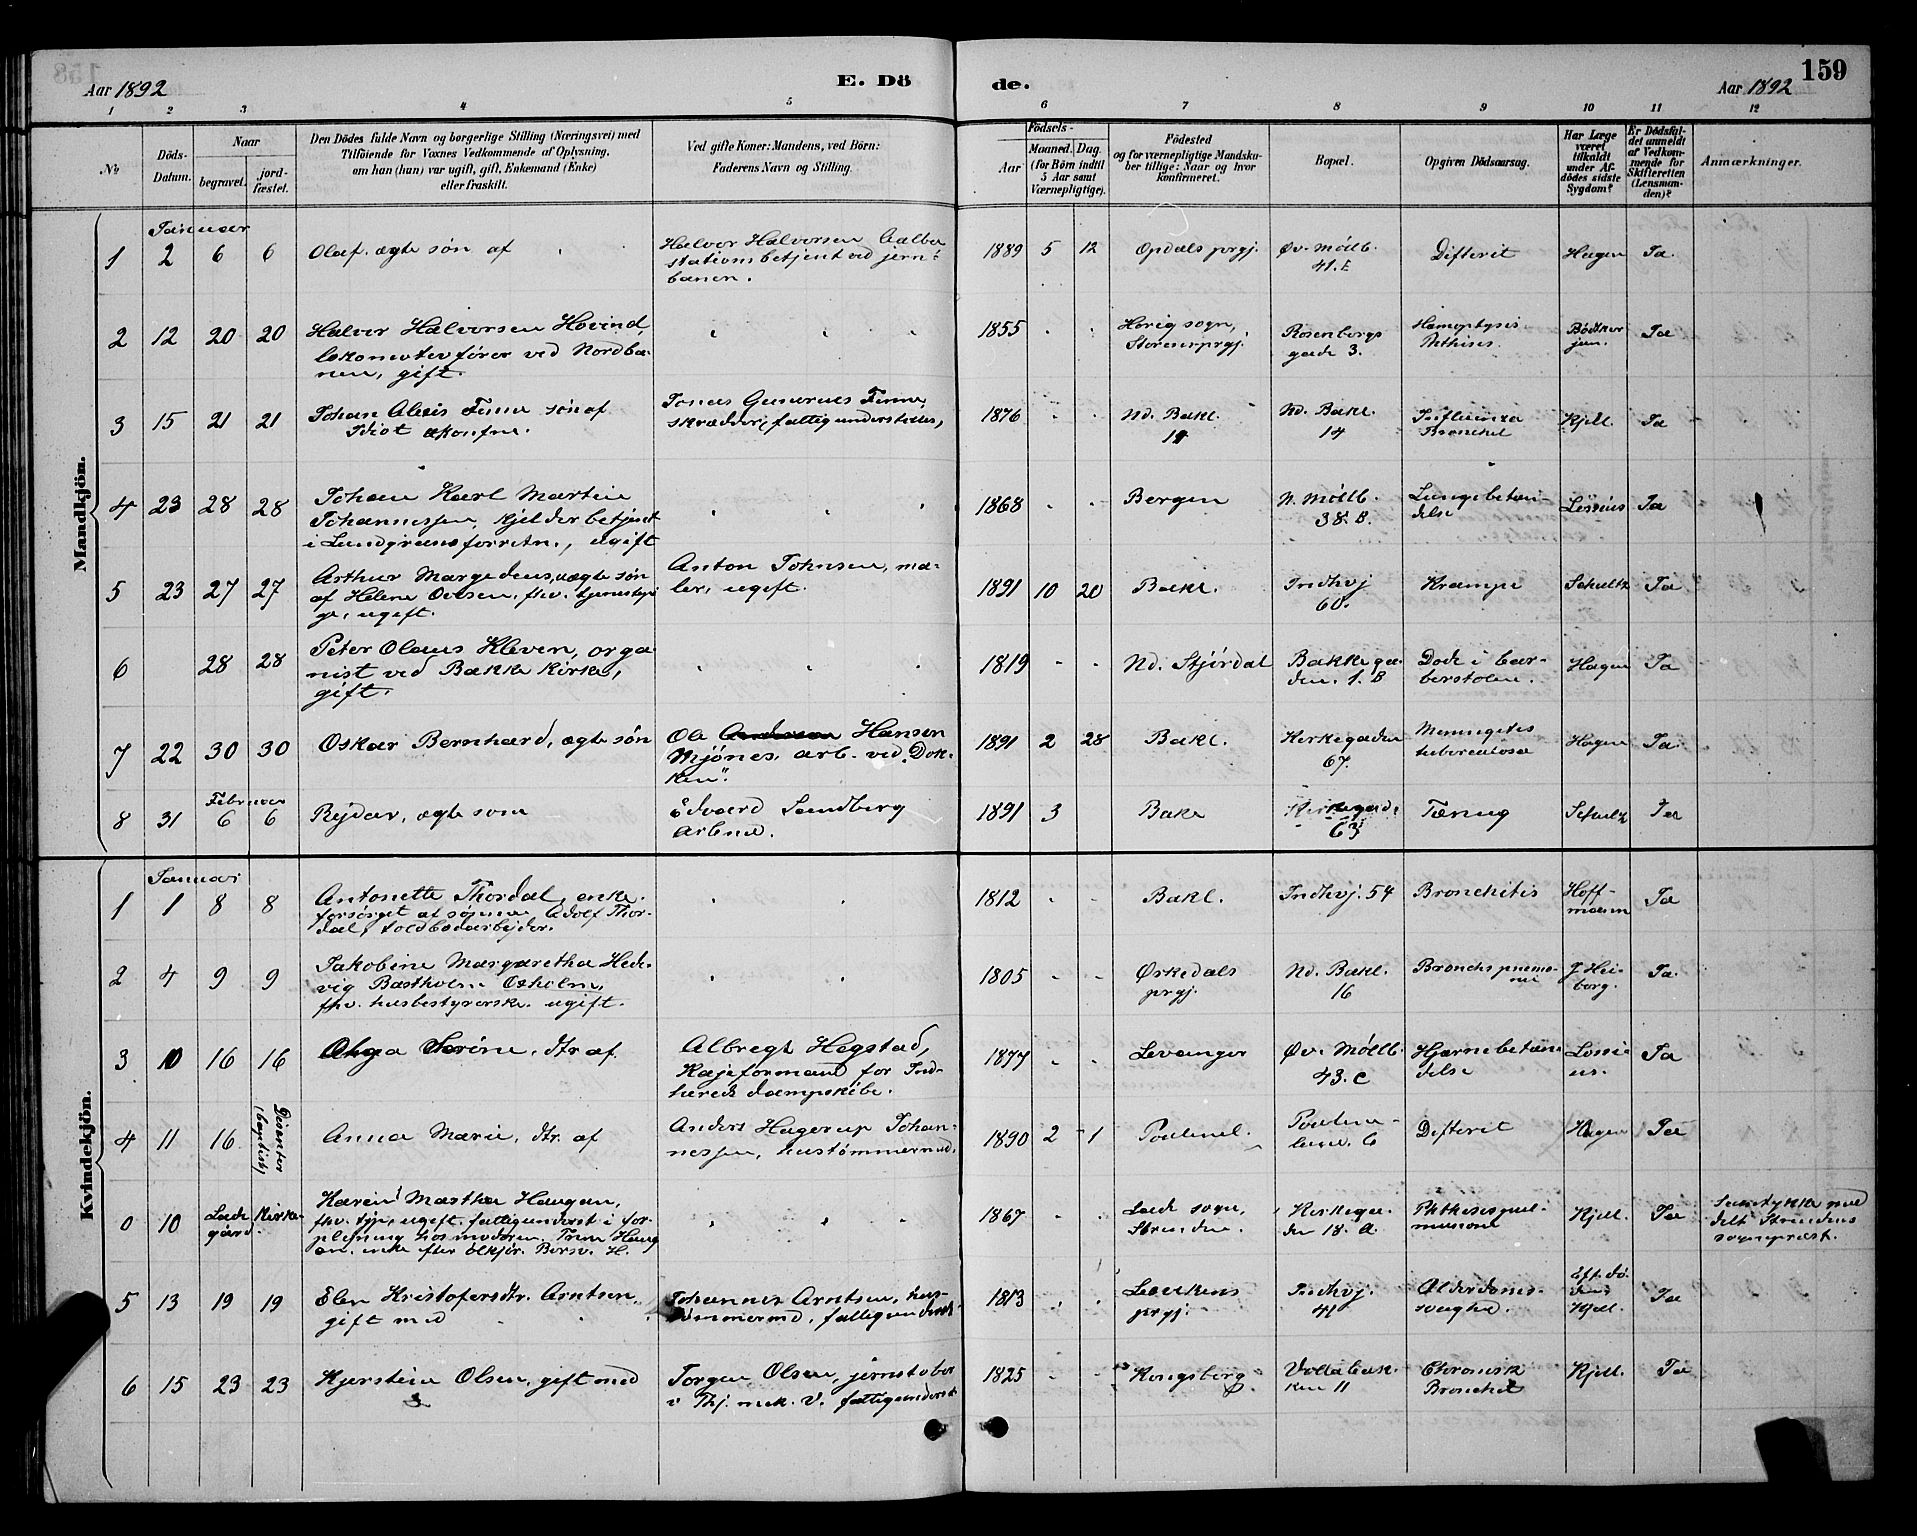 Aar 1892
E. Dö
de.
Aar 1892
159
1 2 3 4 5 6 7 8 9 10 11 12
№
Döds-
Datum.
Naar
begravet.
jord-
fæstet.
Den Dödes fulde Navn og borgerlige Stilling (Næringsvei) med
Tilföiende for Voxnes Vedkommende af Oplysning,
om han (hun) var ugift, gift, Enkemand (Enke)
eller fraskilt.
Ved gifte Koner: Mandens, ved Börn:
Faderens Navn og Stilling.
Födsels-
Aar
Maaned. Dag.
(for Börn indtil
5 Aar samt
Værnepligtige).
Födested
og for værnepligtige Mandska-
ber tillige: Naar og hvor
konfirmeret.
Bopæl.
Opgiven Dödsaarsag.
Har Læge
været
tilkaldt
under Af-
dödes sidste
Sygdom?
Er Dödsfal-
det anmeldt
af Vedkom-
mende for
Skifteretten
(Lensman-
den)?
Anmærkninger.
Mandkjön.
Januar
1 2 6 6 Olaf. ægte søn af
Halvor Halvorsen
stationsbetjent ved jern-
banen.
1889 5 12 Opdals prgj. Øv. Møllb.
41.E
Difterit Hagen Ja.
2 12 20 20 Halvor Halvorsen Hovind,
lokomotivfører ved Nordba-
nen, gift.
1855 Horig sogn,
Storenprgj.
Rosenborgs
gade 3.
Hæmoptysis
Phthisis.
Bødtker
jun.
Ja
3 15 21 21 Johan Alexis Finne søn af
Idiot ukonfne.
Jonas Gunerius Finne
skrædder, fattigunderstøttes,
1876 Nd. Bakl.
14
Nd. Bakl.
14
Influenza
Bronchit
Kjell. Ja
4 23 28 28 Johan Karl Martin
Johannessen, kjelderbetjent
i Lundgreens forretn., ugift
1868 Bergen N. Møllb.
38.B.
Lungebetæn-
delse
Lossius Ja
5 23 27 27 Arthur Margedens, uægte søn
af Helene Ovesen, fhv. tjenestepi-
ge, ugift.
Anton Johnsen, ma-
ler, ugift.
1891 10 20 Bakl. Indhvj
60.
Krampe Schultz Ja
6 28 28 Peter Olaus Kleven, orga-
nist ved Bakke kirke,
gift.
1819 Nd. Stjørdal Bakkega-
den. 1.B
Døde i bar-
berstolen.
Hagen Ja
7 22 30 30 Oskar Bernhard, ægte søn
Ole Andersen Hansen
Mjönes, arb. ved „Dok-
ken".
1891 2 28 Bakl. Kirkegaden
67.
Meningitis
tuberculosa
Hagen Ja.
Februar
8 31 6 6 Rejdar, ægte søn
Edvard Sandberg
Arbmd.
1891 3 Bakl Kirkegade
63
Tæring Schultz Ja
Kvindekjön.
Januar
1 1 8 8 Antonette Thordal, enke.
forsørget af sønnen, Adolf Thor-
dal, toldbodarbejder.
1812 Bakl. Indhvj. 54 Bronchitis Hoff-
mann
Ja
2 4 9 9 Jakobine Margaretha Hed-
vig Bastholm Oxholm,
fhv. husbestyrerske. ugift.
1805 Ørkedals
prgj.
Nd. Bakl.
16
Bronchopneumo-
nie
J Hei-
borg.
Ja.
3 10 16 16 Olga Serine, dtr af
Albregt Hegstad,
Kajeformand for Ind-
hereds dampskibe.
1877 Levanger Øv. Møllb.
43.c
Hjernebetæn-
delse
Lossi-
us.
Ja
4 11 16 Dissenter
(baptist)
Anna Marie, dtr. af
Anders Hagerup Johan-
nessen, hustømmermd.
1890 2 1 Difterit Hagen Ja
0 10 Lade Kirke-
gård.
Karen Martha Haugan,
fhv. tjp, ugift. fattigunderst i for-
plejning hos moderen. Trine Haug
an. enke efter ølkjør. Bersv. H.
1867 Lade sogn,
Strinden
Kirkega-
den 18. A.
Phthisis pul-
monum
Kjell. Ja
Dødstykke med
delt Strindens
sogneprest.
5 13 19 19 Elen Kristofersdtr. Arntsen.
gift med
Johannes Arntsen, hus-
tømmermd, fattigunderst.
1813 Levekens
prgj.
Indhvj.
41
Alderdoms-
svaghed.
Eft. dø-
den
Kjell.
Ja
6 15 23 23 Kjerstine Olsen, gift med
Jørgen Olsen, jernstøber
v Thj. mek. V. fattigunderst
1825 Kongsberg Voldabak-
ken 11
Chronisk
Bronchit
Kjell. Ja